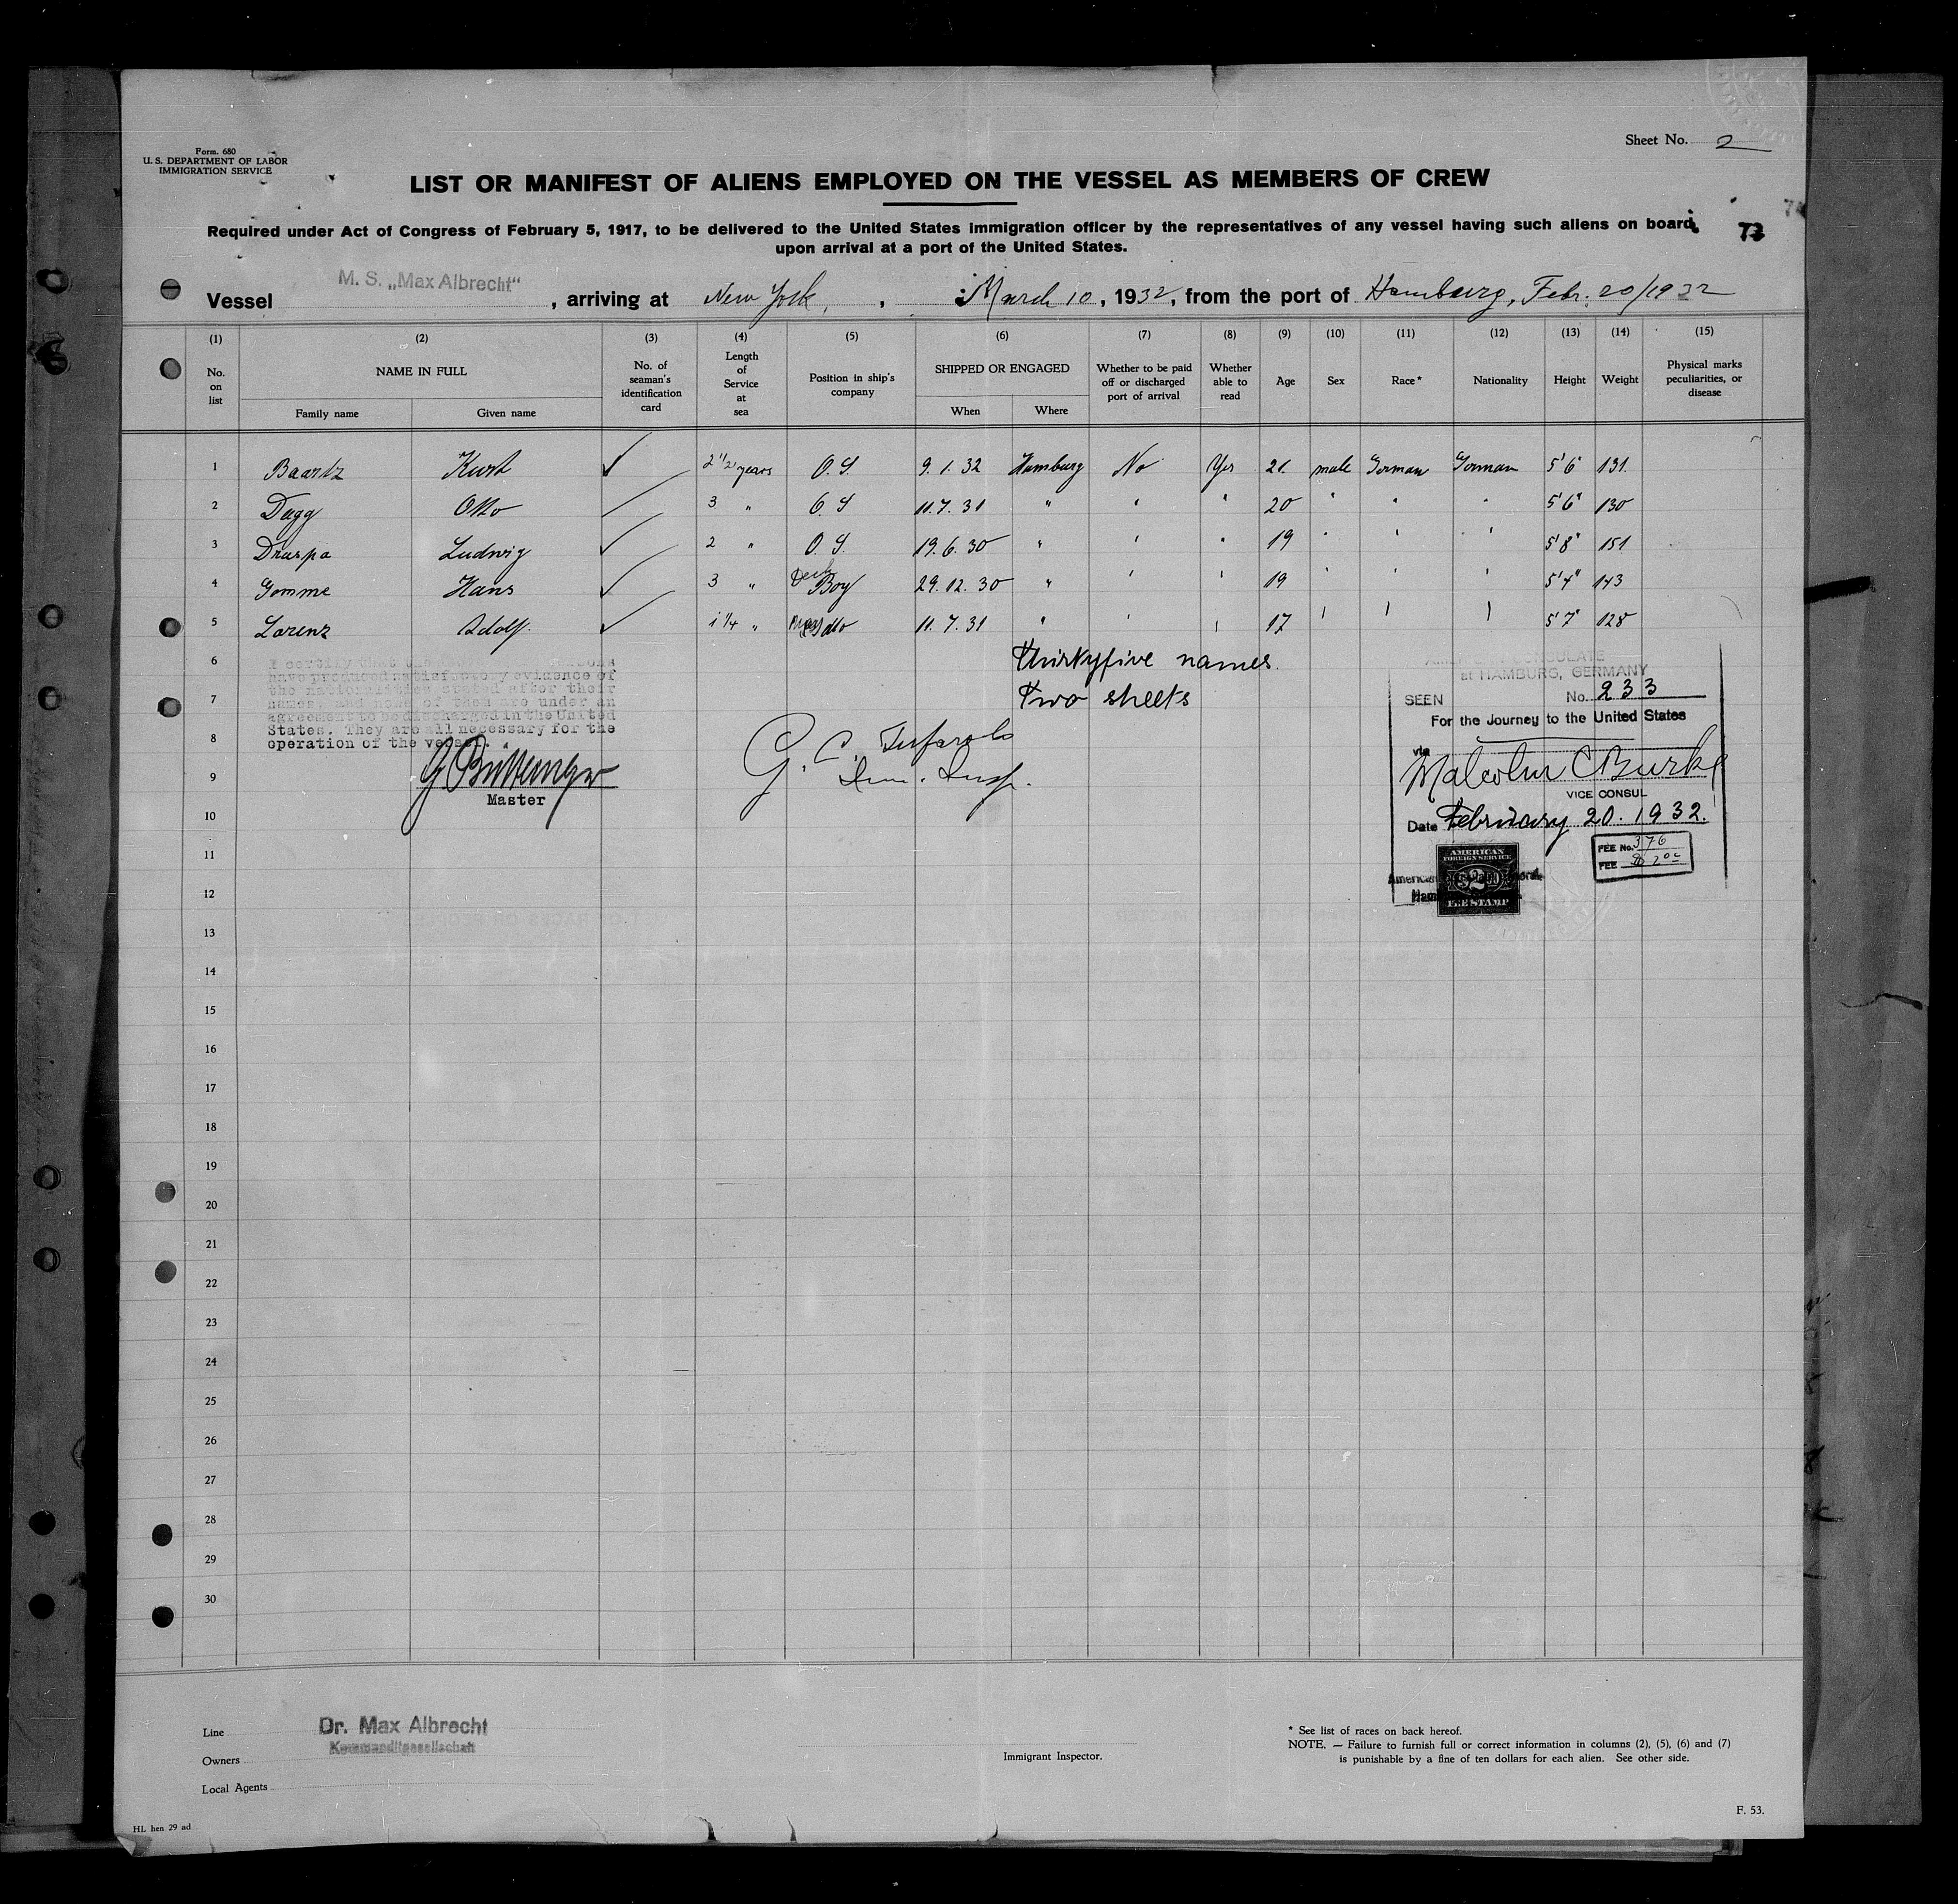 Form. 680
U. S. DEPARTMENT OF LABOR
IMMIGRATION SERVICE
Sheet No. 2
LIST OR MANIFEST OF ALIENS EMPLOYED ON THE VESSEL AS MEMBERS OF CREW
Required under Act of Congress of February 5, 1917, to be delivered to the United States immigration officer by the representatives of any vessel having such aliens on board,
upon arrival at a port of the United States.
73
Vessel M. S. „Max Albrecht“, arriving at New York, March 10, 1932, from the port of Hamburg, Febr. 20/1932
(1) (2) (3) (4) (5) (6) (7) (8) (9) (10) (11) (12) (13) (14) (15)
No. on list
NAME IN FULL
Family name
Given name
No. of seaman's identification card
Length of Service at sea
Position in ship's company
SHIPPED OR ENGAGED
When
Where
Whether to be paid off or discharged port of arrival
Whether able to read
Age
Sex
Race*
Nationality
Height
Weight
Physical marks peculiarities, or disease
1 Baartz Kurt ✓ 2 1/2 years O.S. 9.1.32 Hamburg No Yes 21 male German German 5'6" 131
2 Dagg Otto 3 " O.S 11.7.31 " " " 20 " " " 5'6" 130
3 Draspa Ludwig ✓ 2 " O.S. 19.6.30 " " " 19 " " " 5'8" 151
4 Gomme Hans ✓ 3 " Deck Boy 29.12.30 " " " 19 " " " 5'4" 143
5 Lorenz Adolf ✓ 1 1/4 " dto 11.7.31 " " " 17 " " " 5'7" 128
6
7
8
9
10
11
12
13
14
15
16
17
18
19
20
21
22
23
24
25
26
27
28
29
30
Thirtyfive names.
Two sheets
I certify that the
have produced satisfactory evidence of
the nationalities stated after their
names, and none of them are under an
agreement to be discharged in the United
States. They are all necessary for the
operation of the vessel.
Master
G. C.
Imm. Insp.
CONSULATE
at HAMBURG, GERMANY
SEEN No. 233
For the Journey to the United States
via
Malcolm C Burke
VICE CONSUL
Date February 20. 1932.
FEE No. 376
FEE $ 2.00
AMERICAN
FOREIGN SERVICE
$2
FEE STAMP
American
Ham
Line
Dr. Max Albrecht
Kommanditgesellschaft
Owners
Local Agents
Immigrant Inspector.
* See list of races on back hereof.
NOTE. — Failure to furnish full or correct information in columns (2), (5), (6) and (7)
is punishable by a fine of ten dollars for each alien. See other side.
F. 53.
HL hen 29 ad